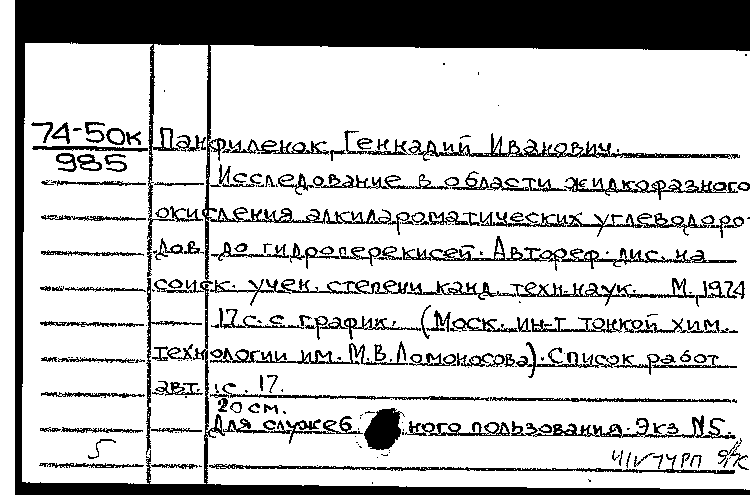 74-50к Панфиленок, Геннадий Иванович.
985
Исследование в области жидкофазного
окисления алкилароматических углеводоро-
дов до гидроперекисей. Автореф. дис. на
соиск. учен. степени канд. техн. наук. М., 1974
17 с. с график. (Моск. ин-т тонкой хим.
технологии им. М.В. Ломоносова). Список работ
авт.: с. 17.
20 см.
Для служеб ного пользования. Экз. №5.
5